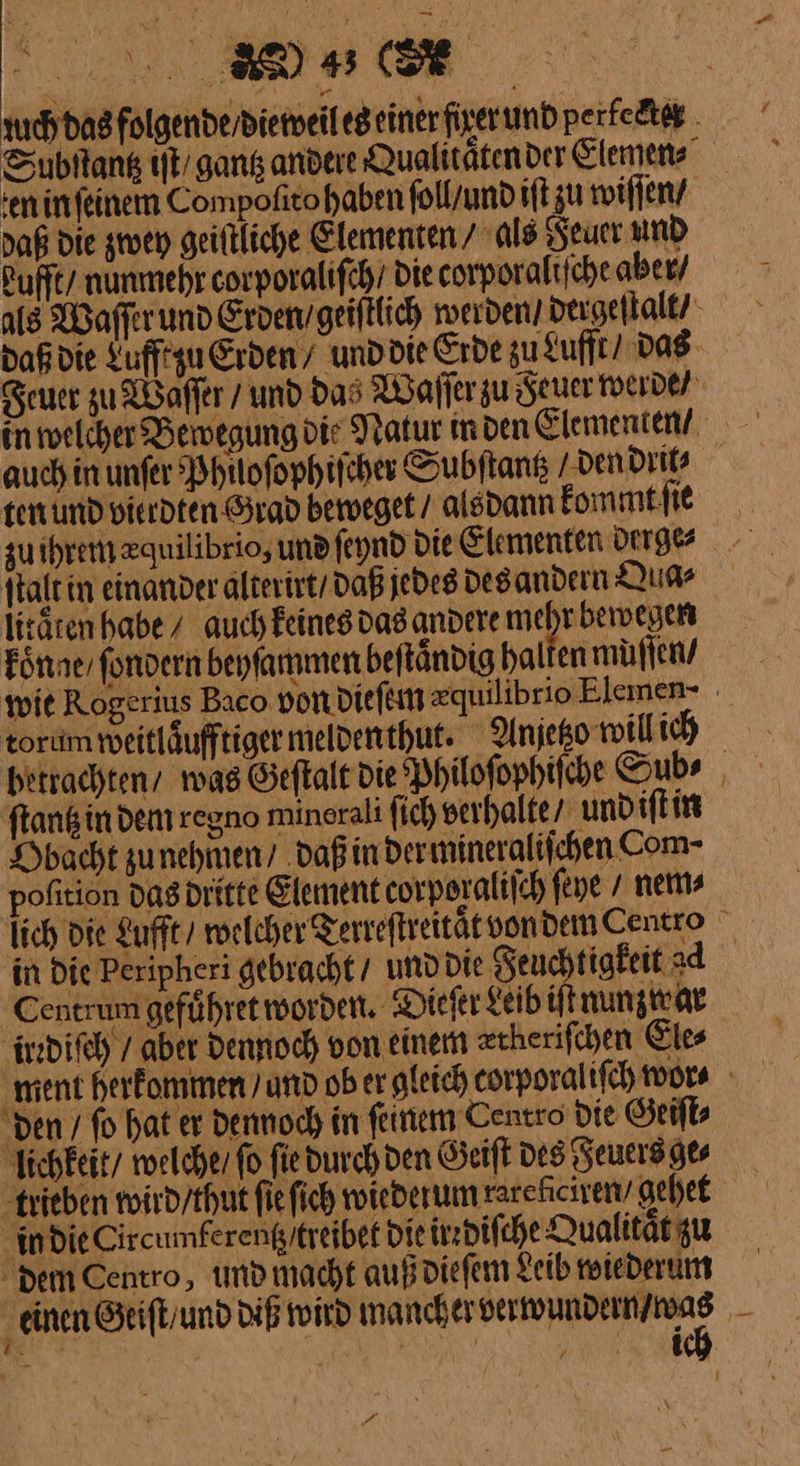 43
auch das folgende/dieweil es einer fixer und perfecter
Subſtantz iſt/ gantz andere Qualitäten der Elemen⸗
ten in ſeinem Compoſito haben ſoll/und iſt zu wiſſen/
daß die zwey geiſtliche Elementen / als Feuer und
Lufft/ nunmehr corporaliſch/ die corporaliſche aber/
als Waſſer und Erden/geiſtlich werden/ dergeſtalt/
daß die Lufft zu Erden / und die Erde zu Lufft / das
Feuer zu Waſſer / und das Waſſer zu Feuer werde/
in welcher Bewegung die Natur in den Elementen/
auch in unſer Philoſophiſcher Subſtantz / den drit⸗
ten und vierdten Grad beweget / alsdann kommt ſie
zu ihrem æquilibrio, und ſeynd die Elementen derge⸗
ſtalt in einander alterirt/ daß jedes des andern Qua⸗
litäten habe / auch keines das andere mehr bewegen
könne/ ſondern beyſammen beſtändig halten müſſen/
wie Rogerius Baco von dieſem æquilibrio Elemen-
torum weitläufftiger melden thut. Anjetzo will ich
betrachten/ was Geſtalt die Philoſophiſche Sub⸗
ſtantz in dem regno minerali ſich verhalte/ und iſt in
Obacht zu nehmen / daß in der mineraliſchen Com-
poſition das dritte Element corporaliſch ſeye / nem⸗
lich die Lufft / welcher Terreſtreität von dem Centro
in die Peripheri gebracht / und die Feuchtigkeit ad
Centrum geführet worden. Dieſer Leib iſt nun zwar
irꝛdiſch / aber dennoch von einem ætheriſchen Ele⸗
ment herkommen / und ob er gleich corporaliſch wor⸗
den / ſo hat er dennoch in ſeinem Centro die Geiſt⸗
lichkeit/ welche/ ſo ſie durch den Geiſt des Feuers ge⸗
trieben wird/thut ſie ſich wiederum rareficiren/ gehet
in die Circumferentz/treibet die irꝛdiſche Qualität zu
dem Centro, und macht auß dieſem Leib wiederum
einen Geiſt/und diß wird mancher verwundern/was
ich